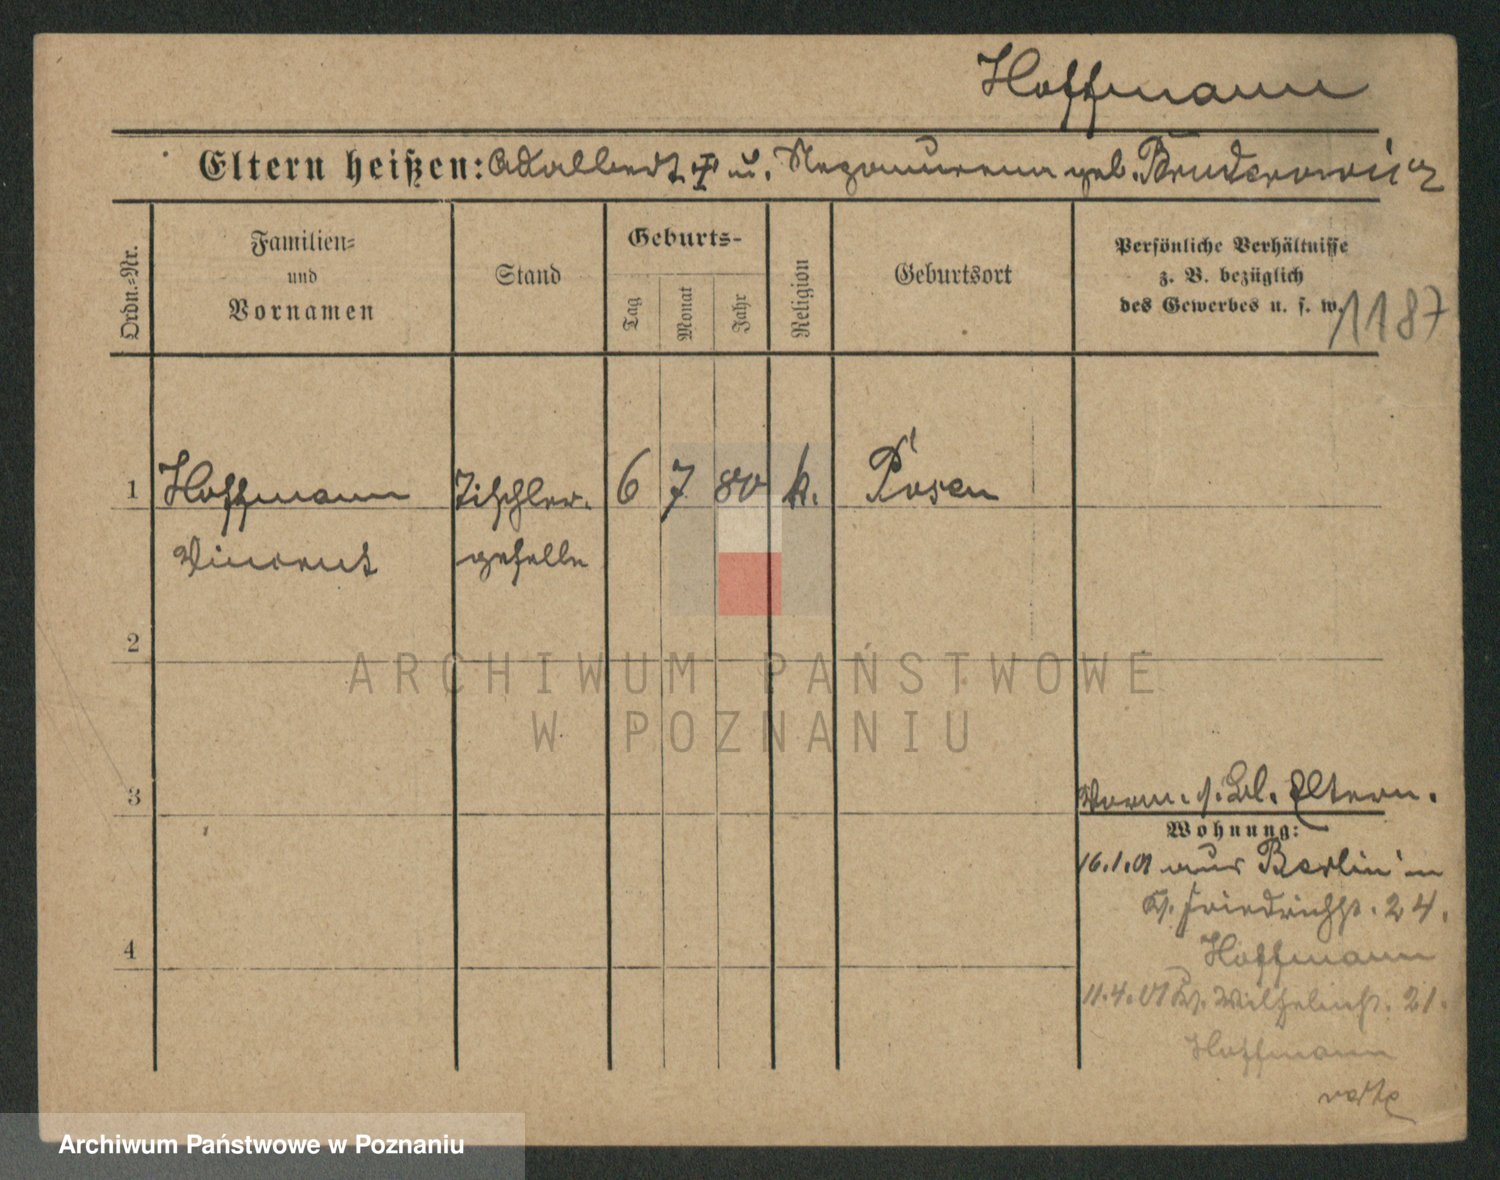 Hoffmann
Eltern heißen: Adalbert † u. Nepomucena geb. Bruderowicz
Ordn.-Nr.
Familien-
und
Vornamen
Stand
Geburts-
Tag
Monat
Jahr
Religion
Geburtsort
Persönliche Verhältnisse
z. B. bezüglich
des Gewerbes u. s. w.
1187
1 Hoffmann Tischler- 6 7 80 k. Posen
Vincent geselle
2
ARCHIWUM PAŃSTWOWE
W POZNANIU
3
Vorm. s. Bl. Eltern.
Wohnung:
16.1.01 aus Berlin in
Friedrichst. 24.
4
Hoffmann
11.4.01 Wilhelmst. 21.
Hoffmann
verte
Archiwum Państwowe w Poznaniu